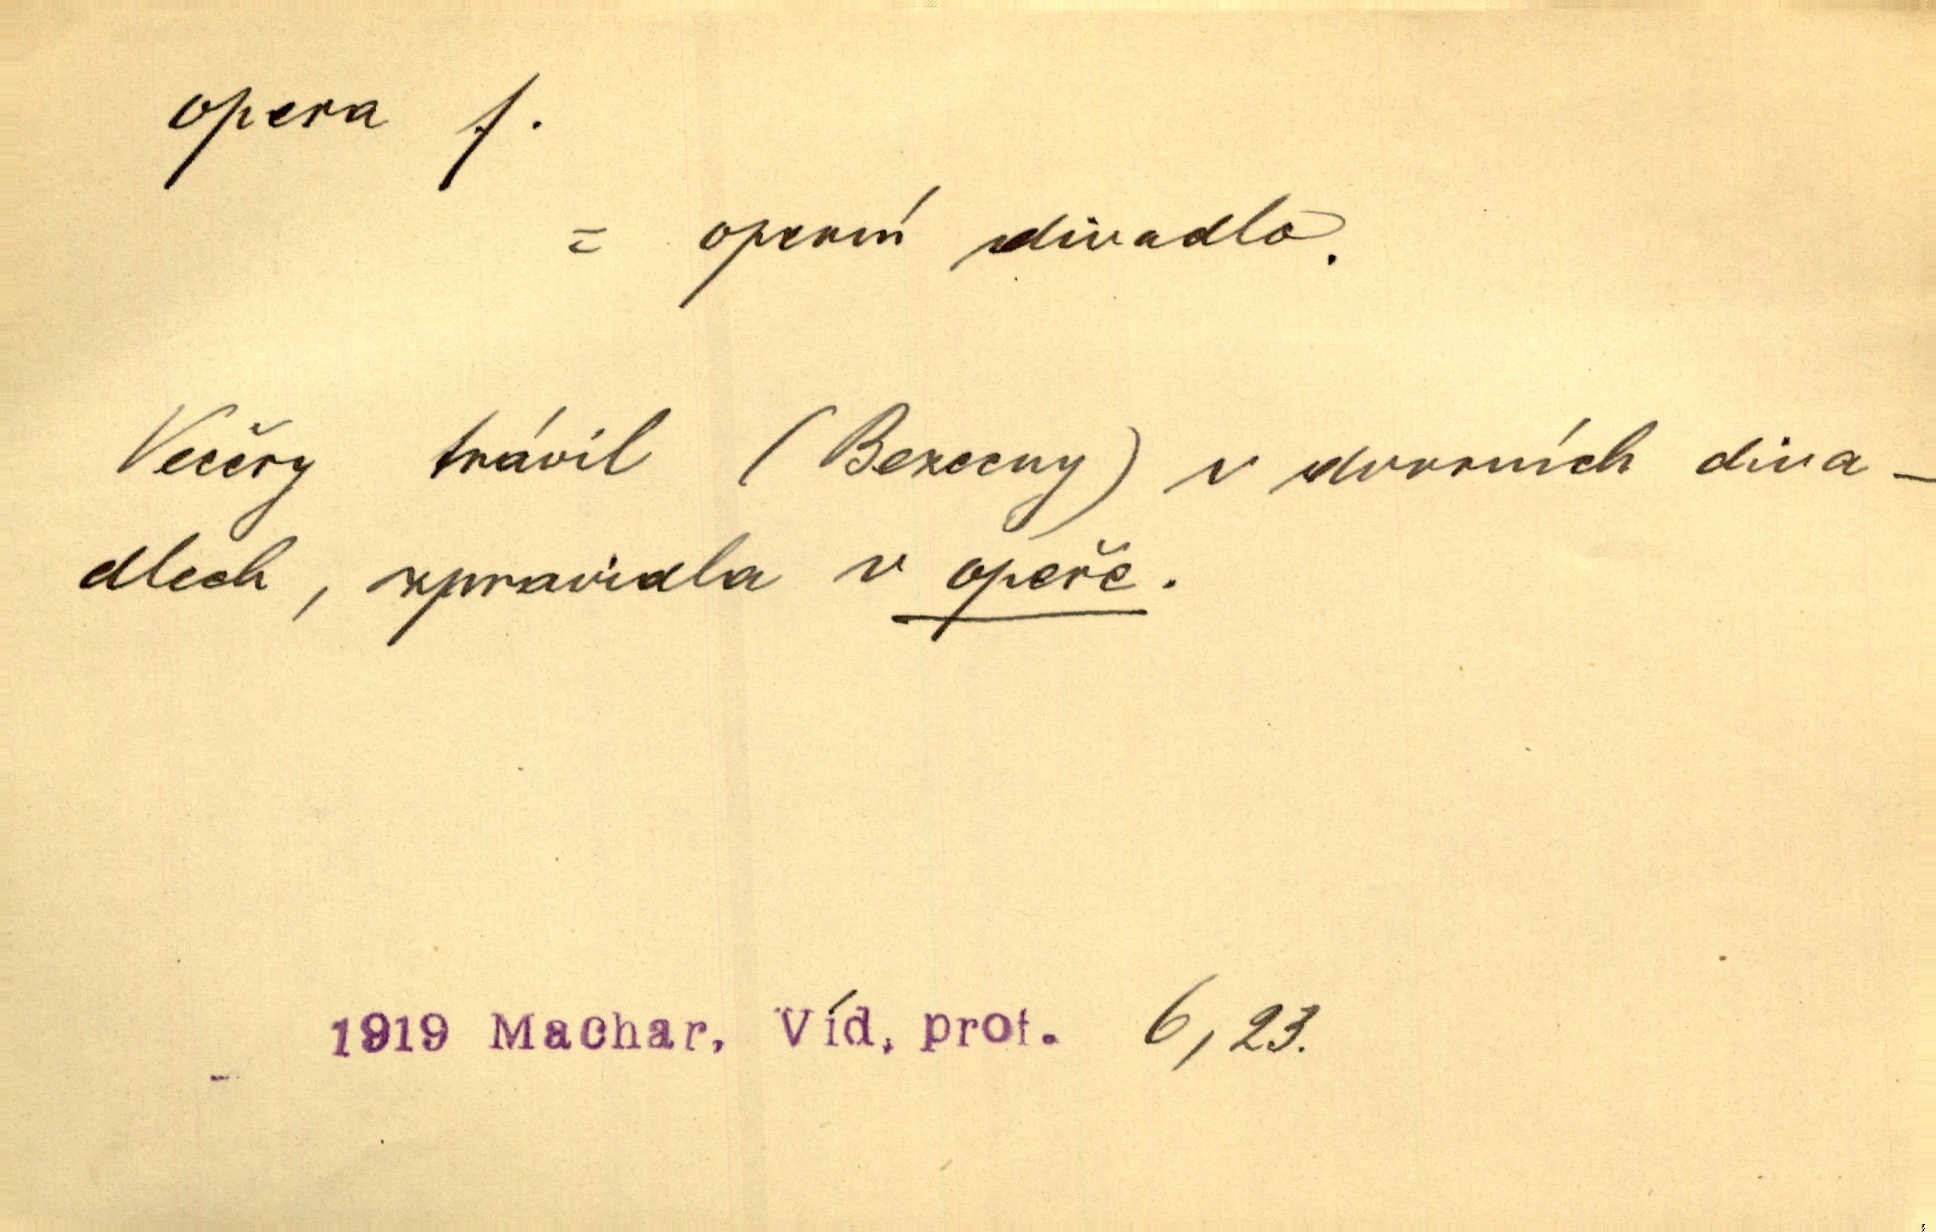 opera f.
= operní divadlo.
Večery trávil (Bezecny) v dvorních diva-
dlech, zpravidla v opeře.
1919 Machar, Víd. prof. 6, 23.